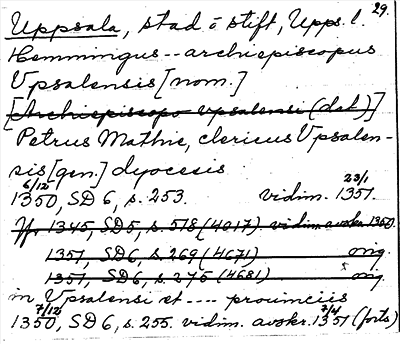 29.
Uppsala, stad o stift, Upps. l.
Hemmingus -- archiepiscopus
Vpsalensis [nom.]
[Archiepiscopo vpsalensi (dat)]
Petrus Mathie, clericus Vpsalen-
sis [gen.] dyocesis
6/12 23/1
1350, SD 6, s. 253. vidim. 1351.
1345, SD5, s. 578 (4017) vidim. avskr. 1350.
1351, SD6, s. 269 (4671) orig.
1351, SD6, s. 276 (4681) orig
in Vpsalensi et ---- prouinciis
7/12 7/4
1350, SD 6, s. 255. vidim. avskr. 1351 (forts)